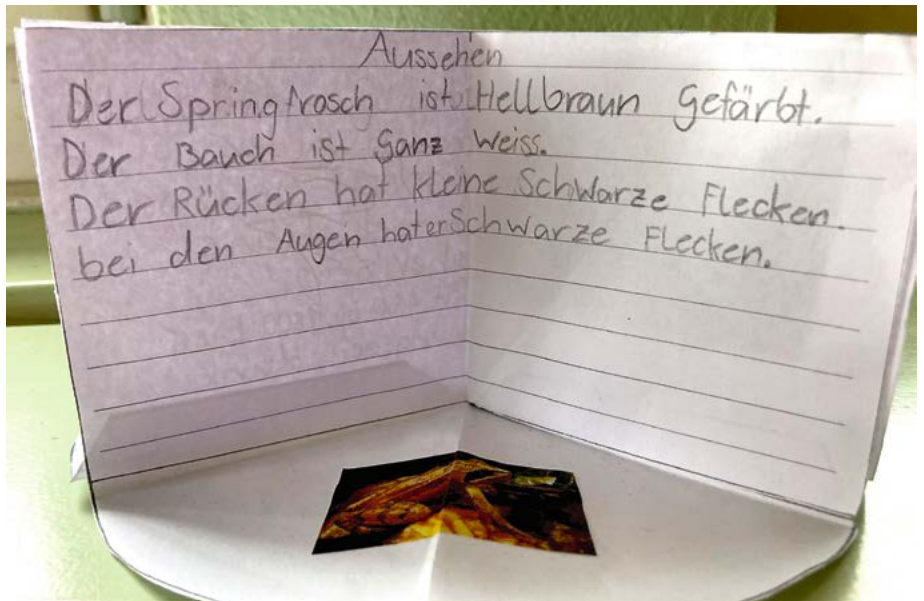 Aussehen
Der Springfrosch ist Hellbraun Gefärbt.
Der Bauch ist Ganz Weiss.
Der Rücken hat kleine Schwarze Flecken.
bei den Augen hater Schwarze Flecken.